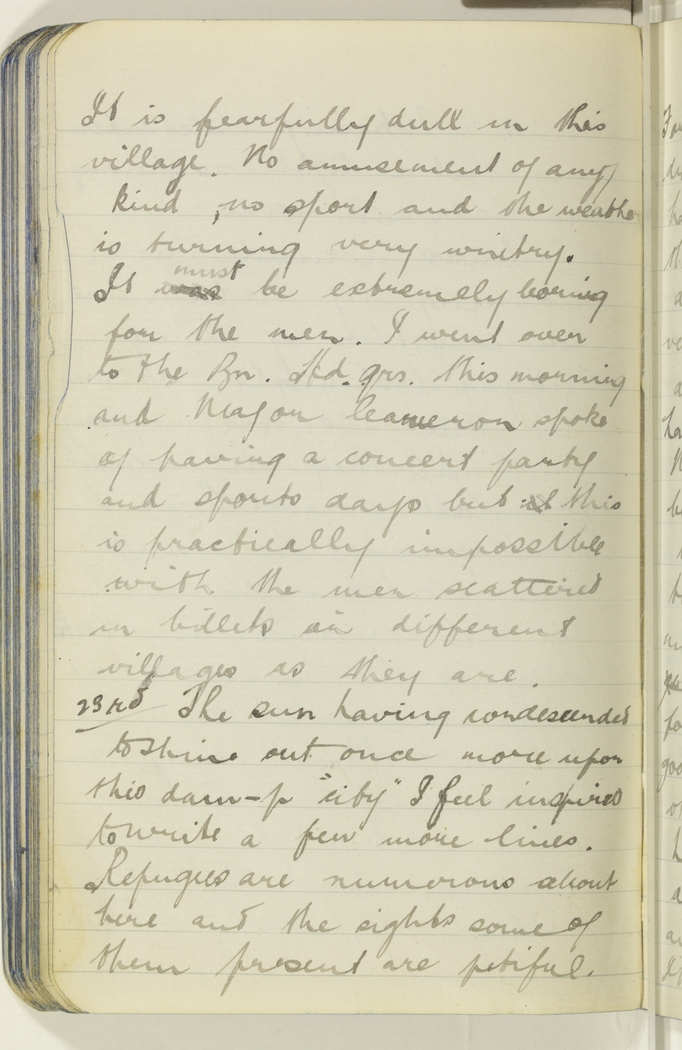 It is fearfully dull in this
village. No amusement of any
kind, no sport and the weather
is turning very wintry.
It was must be extremely boring
for the men. I went over
to the Bn. Hd. qrs. this morning
and Major Cameron spoke
of having a concert party
and sports days but it this
is practically impossible
with the men scattered
in billets in different
villages as they are.
23rd The sun having condescended
to shine out once more upon
this dam-p "city" I feel inspired
to write a few more lines.
Refugees are numerous about
here and the sights some of
them present are pitiful.